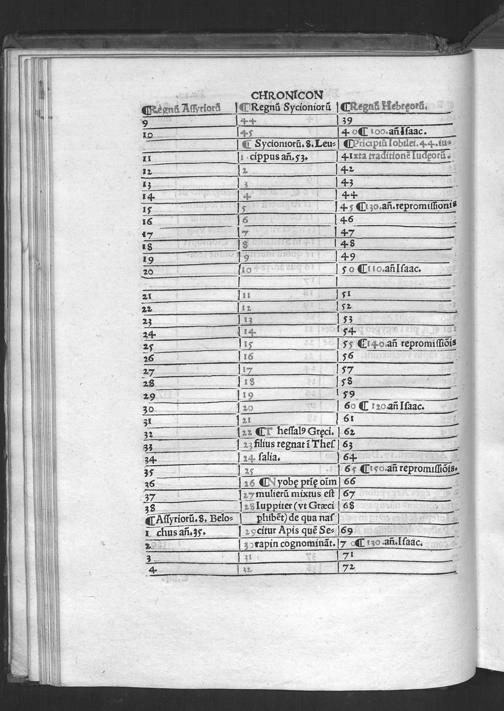 CHRONICON
¶Regnũ Assyriorũ ¶Regnũ Sycioniorũ ¶Regnũ Hebręorũ.
9 44 39
10 45 40 ¶100.añ Isaac.
¶Sycioniorũ.8.Leu- ¶Prĩcipiũ Iobilei.44.iu-
11 1 cippus añ.53. 41 xta traditionẽ Iudęorũ.
12 2 42
13 3 43
14 4 44
15 5 45 ¶130.añ.repromissionis
16 6 46
17 7 47
18 8 48
19 9 49
20 10 50 ¶110.añ Isaac.
21 11 51
22 12 52
23 13 53
24 14 54
25 15 55 ¶140.añ repromissiõis
26 16 56
27 17 57
28 18 58
29 19 59
30 20 60 ¶120.añ Isaac.
31 21 61
32 22 ¶Thessalꝰ Gręci. 62
33 23 filius regnat ĩ Thes 63
34 24 salia. 64
35 25 65 ¶150.añ repromissiõis.
36 26 ¶Nyobę prię oĩm 66
37 27 mulierũ mixtus est 67
38 28 Iuppiter (vt Gręci 68
¶Assyriorũ.8.Belo- phibẽt) de qua nas
1 chus añ.35. 29 citur Apis quẽ Se- 69
2 30 rapin cognominãt. 70 ¶130.añ.Isaac.
3 31 71
4 32 72